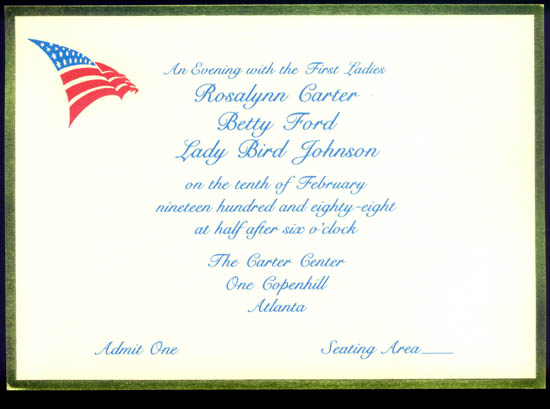 An Evening with the First Ladies
Rosalynn Carter
Betty Ford
Lady Bird Johnson
on the tenth of February
nineteen hundred and eighty-eight
at half after six o'clock
The Carter Center
One Copenhill
Atlanta
Admit One Seating Area____